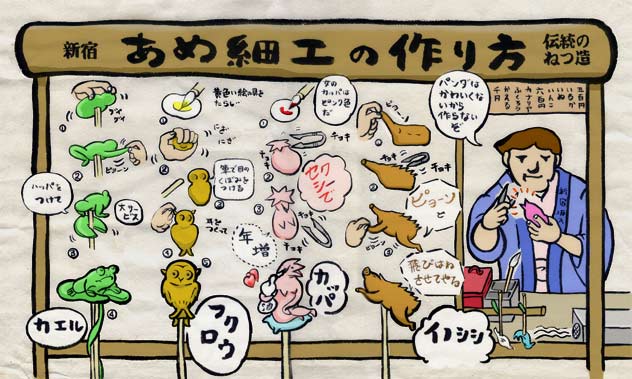 新宿
あめ細工の作り方
伝統の
ねつ造
グイ
グイ
①
②
ピョーン
ハッパを
つけて
大サー
ビス
③
④
カエル
①
黄色い絵の具を
たらし
②
にぎ
にぎ
③
筆で目の
くぼみを
つける
④
耳を
つくって
⑤
フクロウ
①
女の
カッパは
ピンク色
だ
②
チョキ
チョキ
セクシーで
③
チョキ
チョキ
年増
カバ
①
ピョーン
②
チョキ
チョキ
③
ピョーン
ピョーンと
飛びはね
させてやる
イノシシ
パンダは
かわいくな
いから
作らない
ぞ
五百円
いるか
いぬ
いんこ
六百円
カナリヤ
ふくろう
かえる
千円